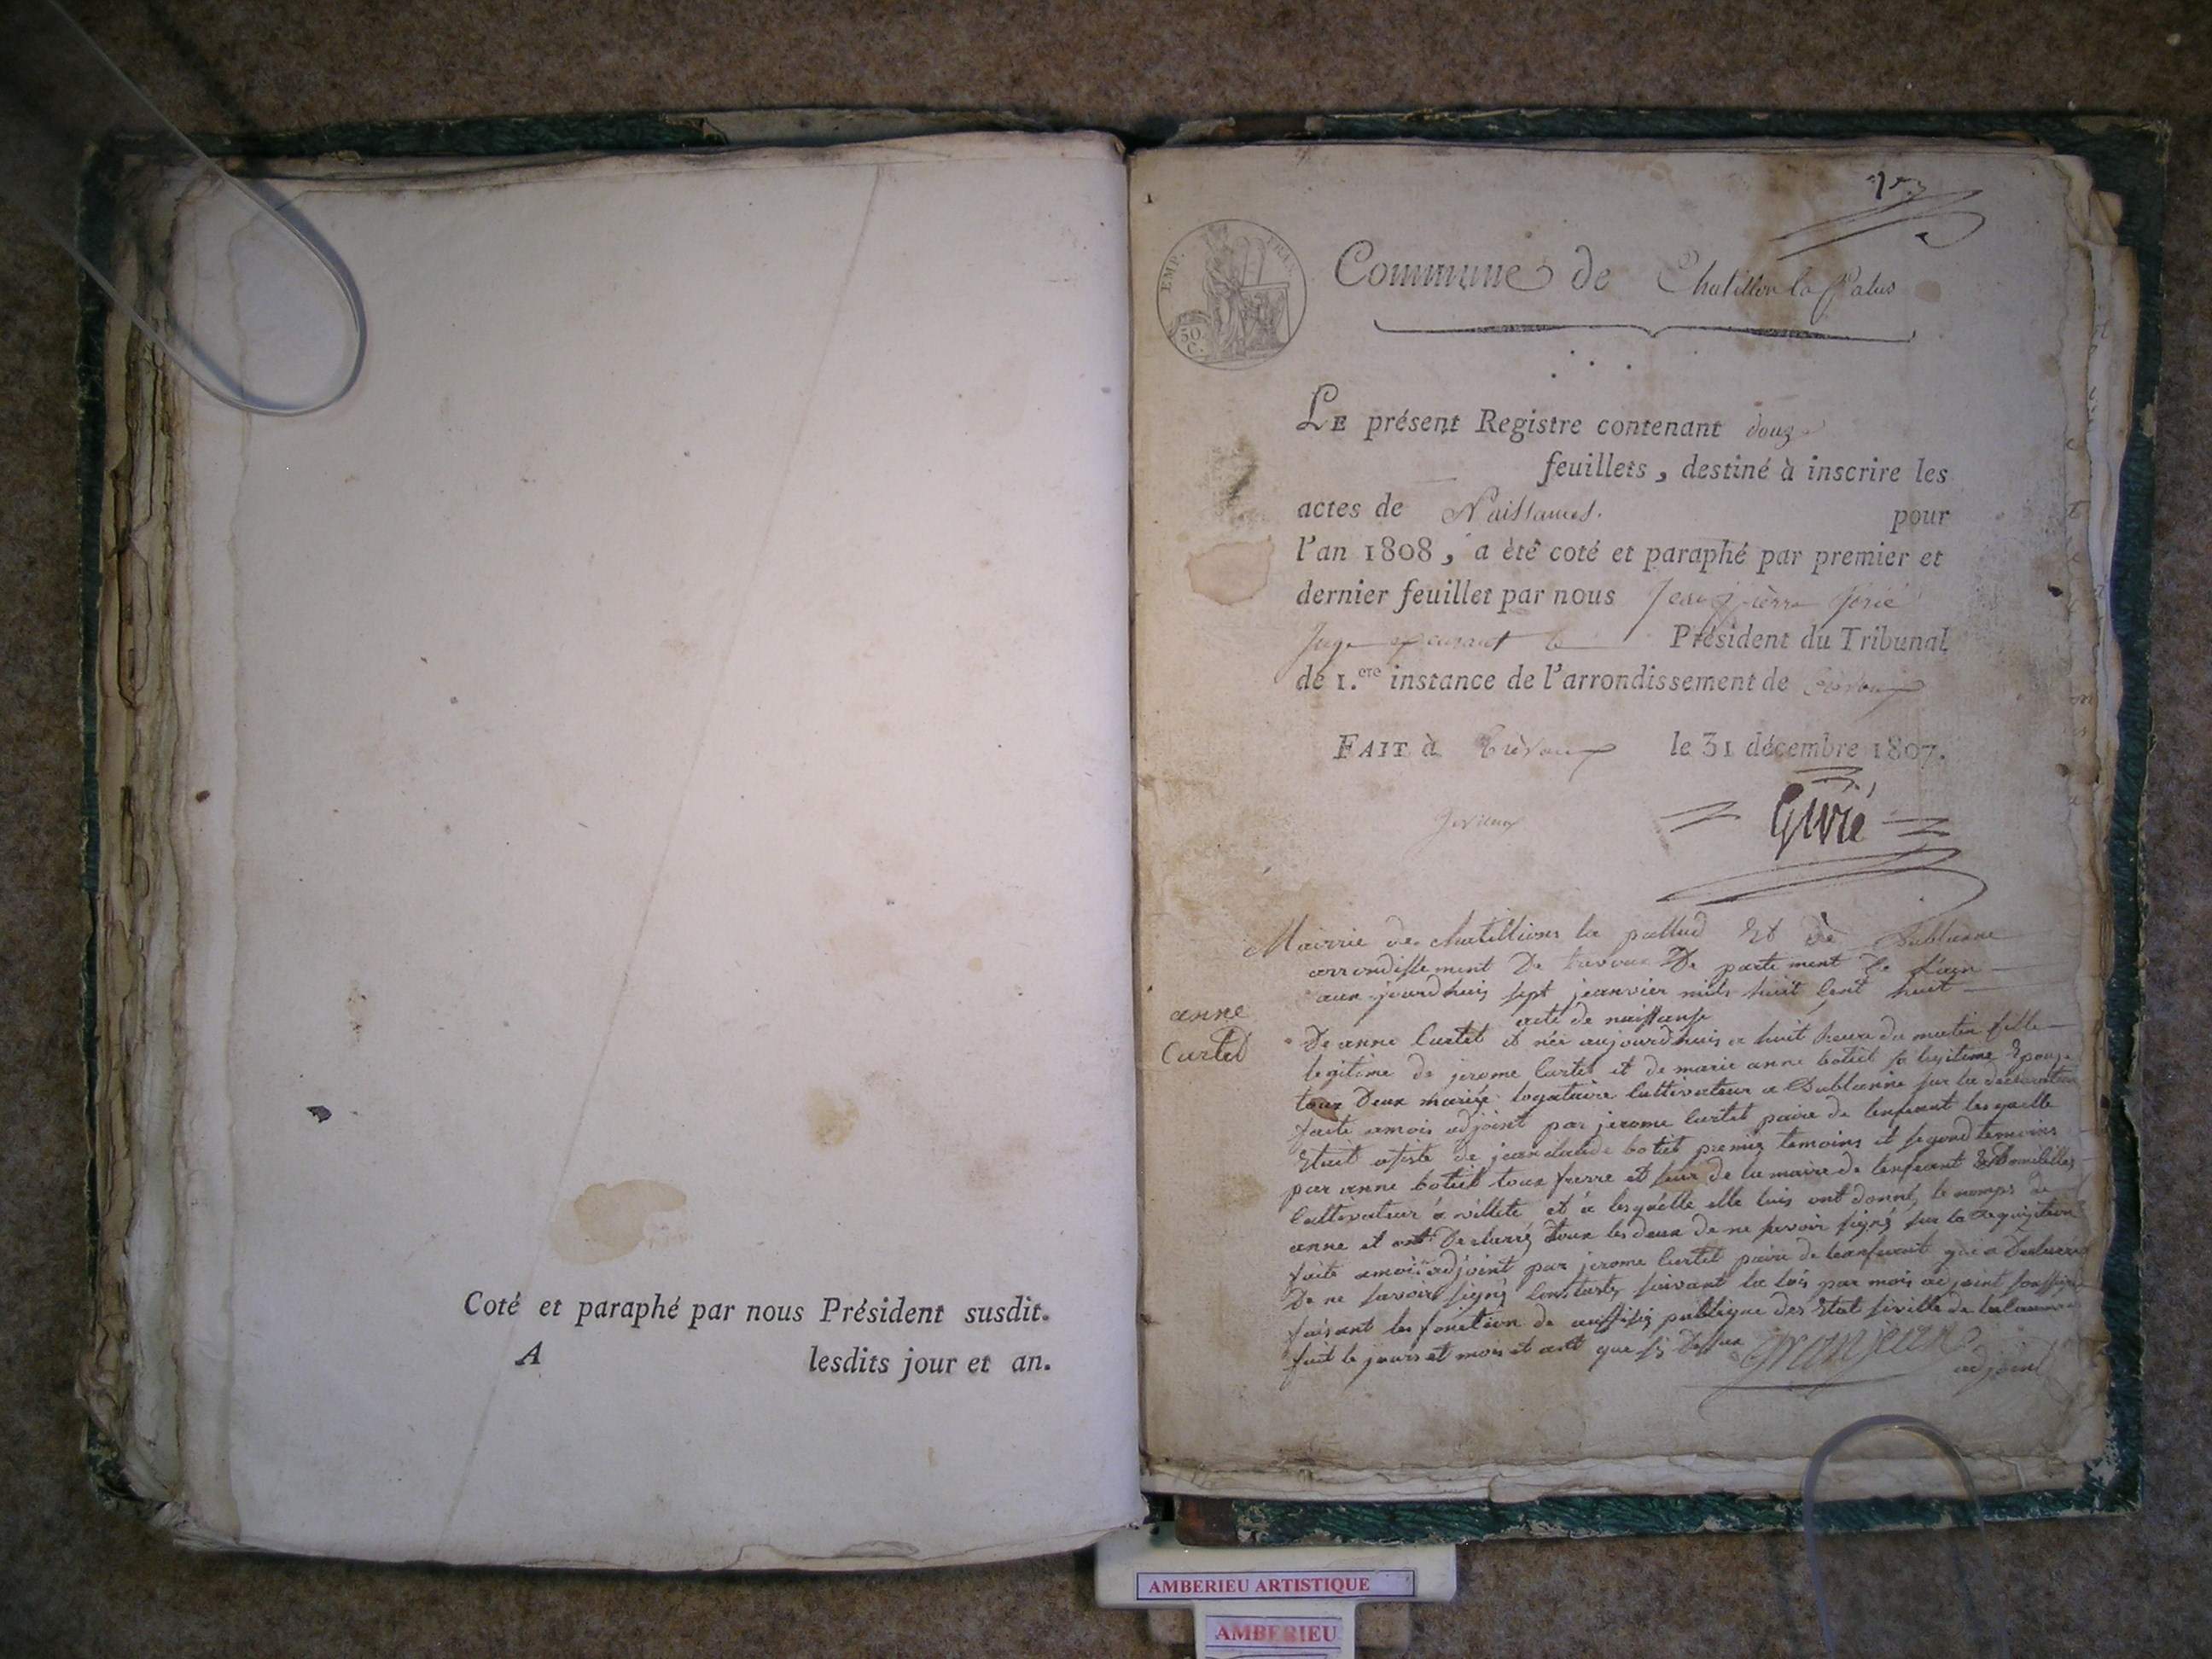 Coté et paraphé par nous Président susdit.
A lesdits jour et an.
EMP. FRAN.
50 C.
Commune de Chatillon la Palus
LE présent Registre contenant douze
feuillets, destiné à inscrire les
actes de Naissances. pour
l'an 1808, a été coté et paraphé par premier et
dernier feuillet par nous Jean pierre Givié
Juge Président du Tribunal
de 1.ere instance de l'arrondissement de Trévoux
FAIT à Trévoux le 31 décembre 1807.
Givié
Mairie de chatillions la pallud Et de Bublanne
arrondissement De travoux De partement De Lain
aux jourdhuis sept jeanvier mils huit Cent huit
acte de naissanse
anne
Curtet
De anne Curtet et née aujourdhuis a huit heure du matin fille
legitime de jerome Curtet et de marie anne botiet sa legitime Epouze
toux Deux mariés logataire Cultivateur a Bublanne sur la declaration
faite amois adjoint par jerome Curtet paire de lenfeant lesquelle
Etait asisté de jean claude botiet premier temoins et segond temoins
par anne botiet toux frerre et seur de la maire de lenfeant
Cultivateur a villete et a lesquelle elle luis ont donné le nomps de
anne et ont Declarré toux les deux de ne savoir signé sur la requisition
faite amois adjoint par jerome Curtet paire de leanfeant qui a Declarré
De ne savoir signé suivant la lois par mois adjoint
faisant les fonction de publique des Etat siville de
fait le jours et mois et ant que si Dessux granjean
adjoint
AMBERIEU ARTISTIQUE
AMBERIEU